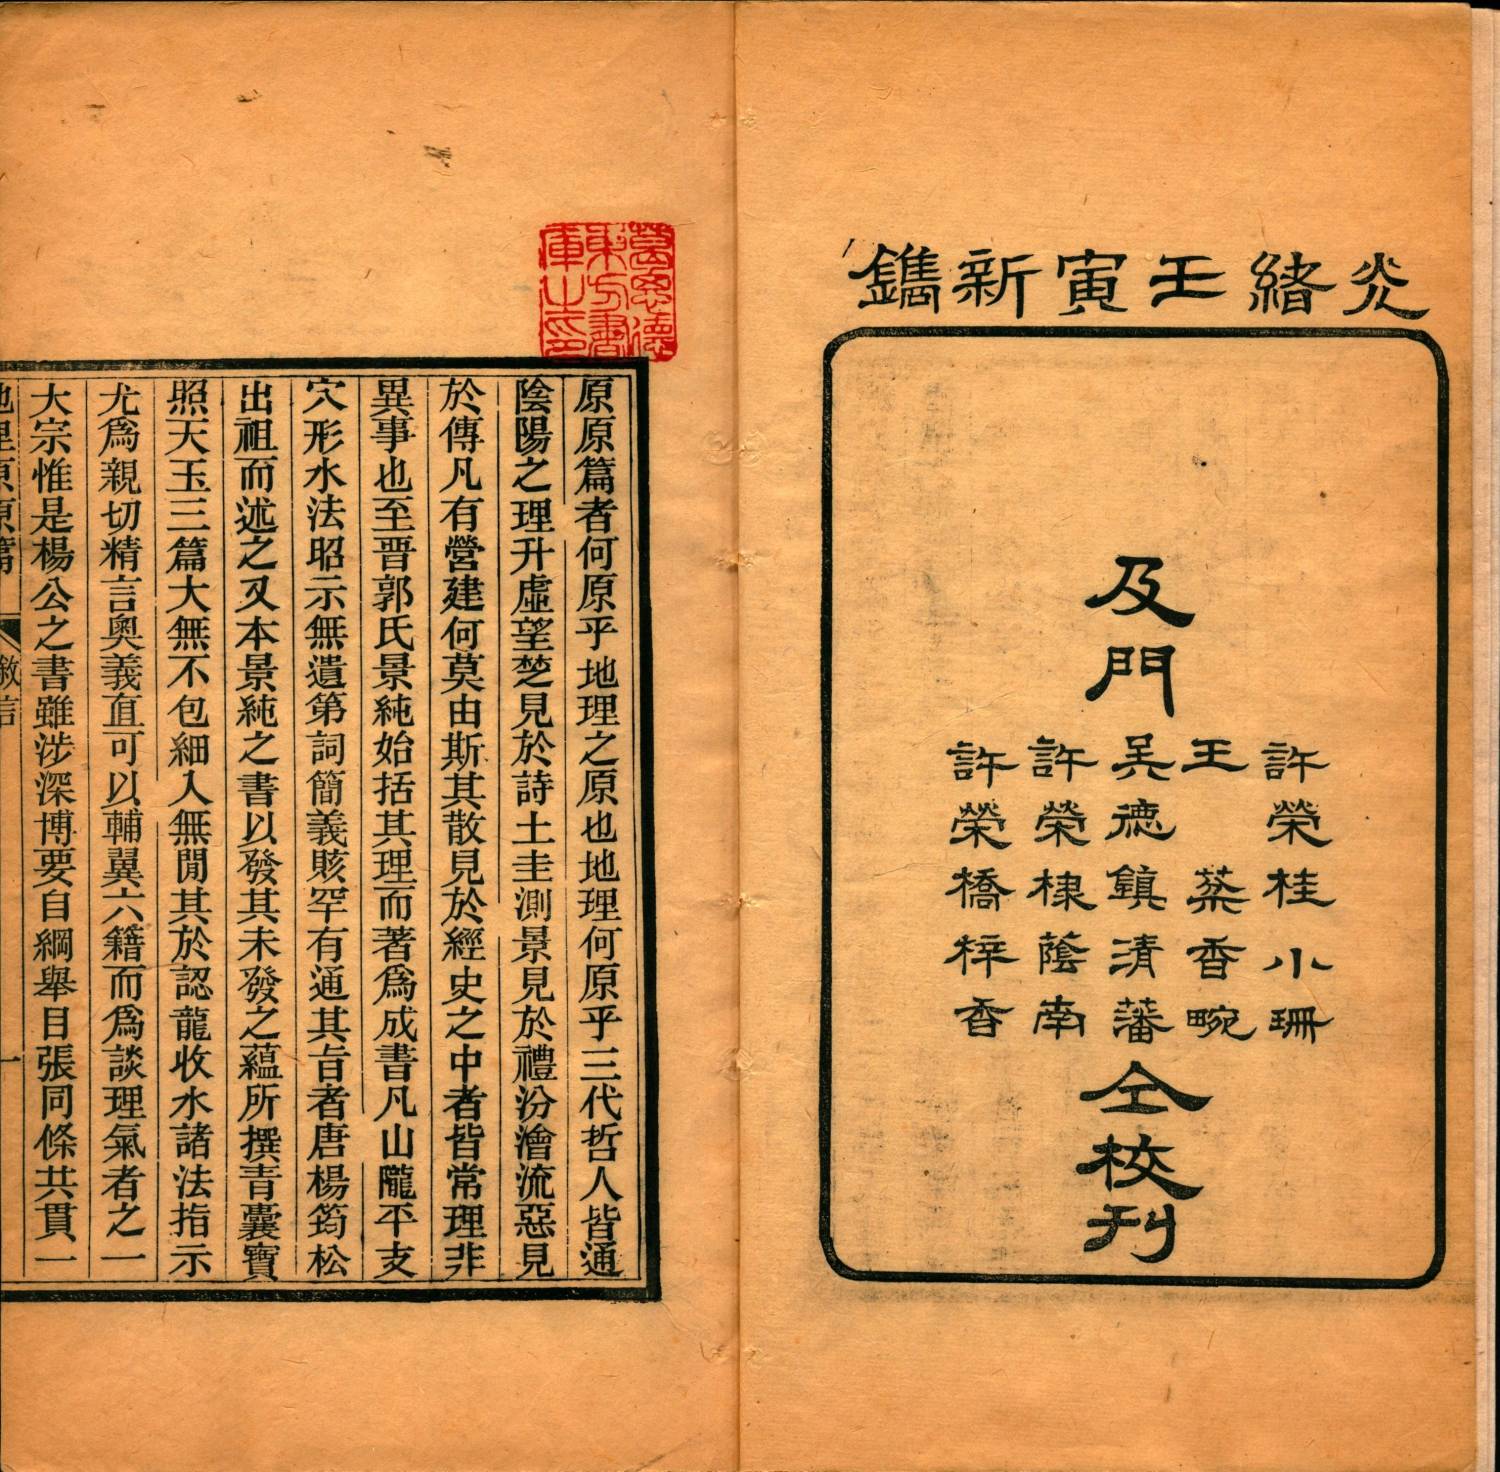 灮緒壬寅新鐫
及門
許榮桂小珊
王棻香畹
吴德鎮清藩
許榮棣蔭南
許榮橋梓香
仝校刊
葛思德
東方書
庫之印
原原篇者何原乎地理之原也地理何原乎三代哲人皆通
陰陽之理升虛望楚見於詩土圭測景見於禮汾澮流惡見
於傳凡有營建何莫由斯其散見於經史之中者皆常理非
異事也至晋郭氏景純始括其理而著爲成書凡山隴平支
穴形水法昭示無遺第詞簡義賅罕有通其旨者唐楊筠松
出祖而述之又本景純之書以發其未發之蘊所撰青囊寶
照天玉三篇大無不包細入無閒其於認龍收水諸法指示
尤爲親切精言奥義直可以輔翼六籍而爲談理氣者之一
大宗惟是楊公之書雖涉深博要自綱舉目張同條共貫一
地理原原篇 敘言 一